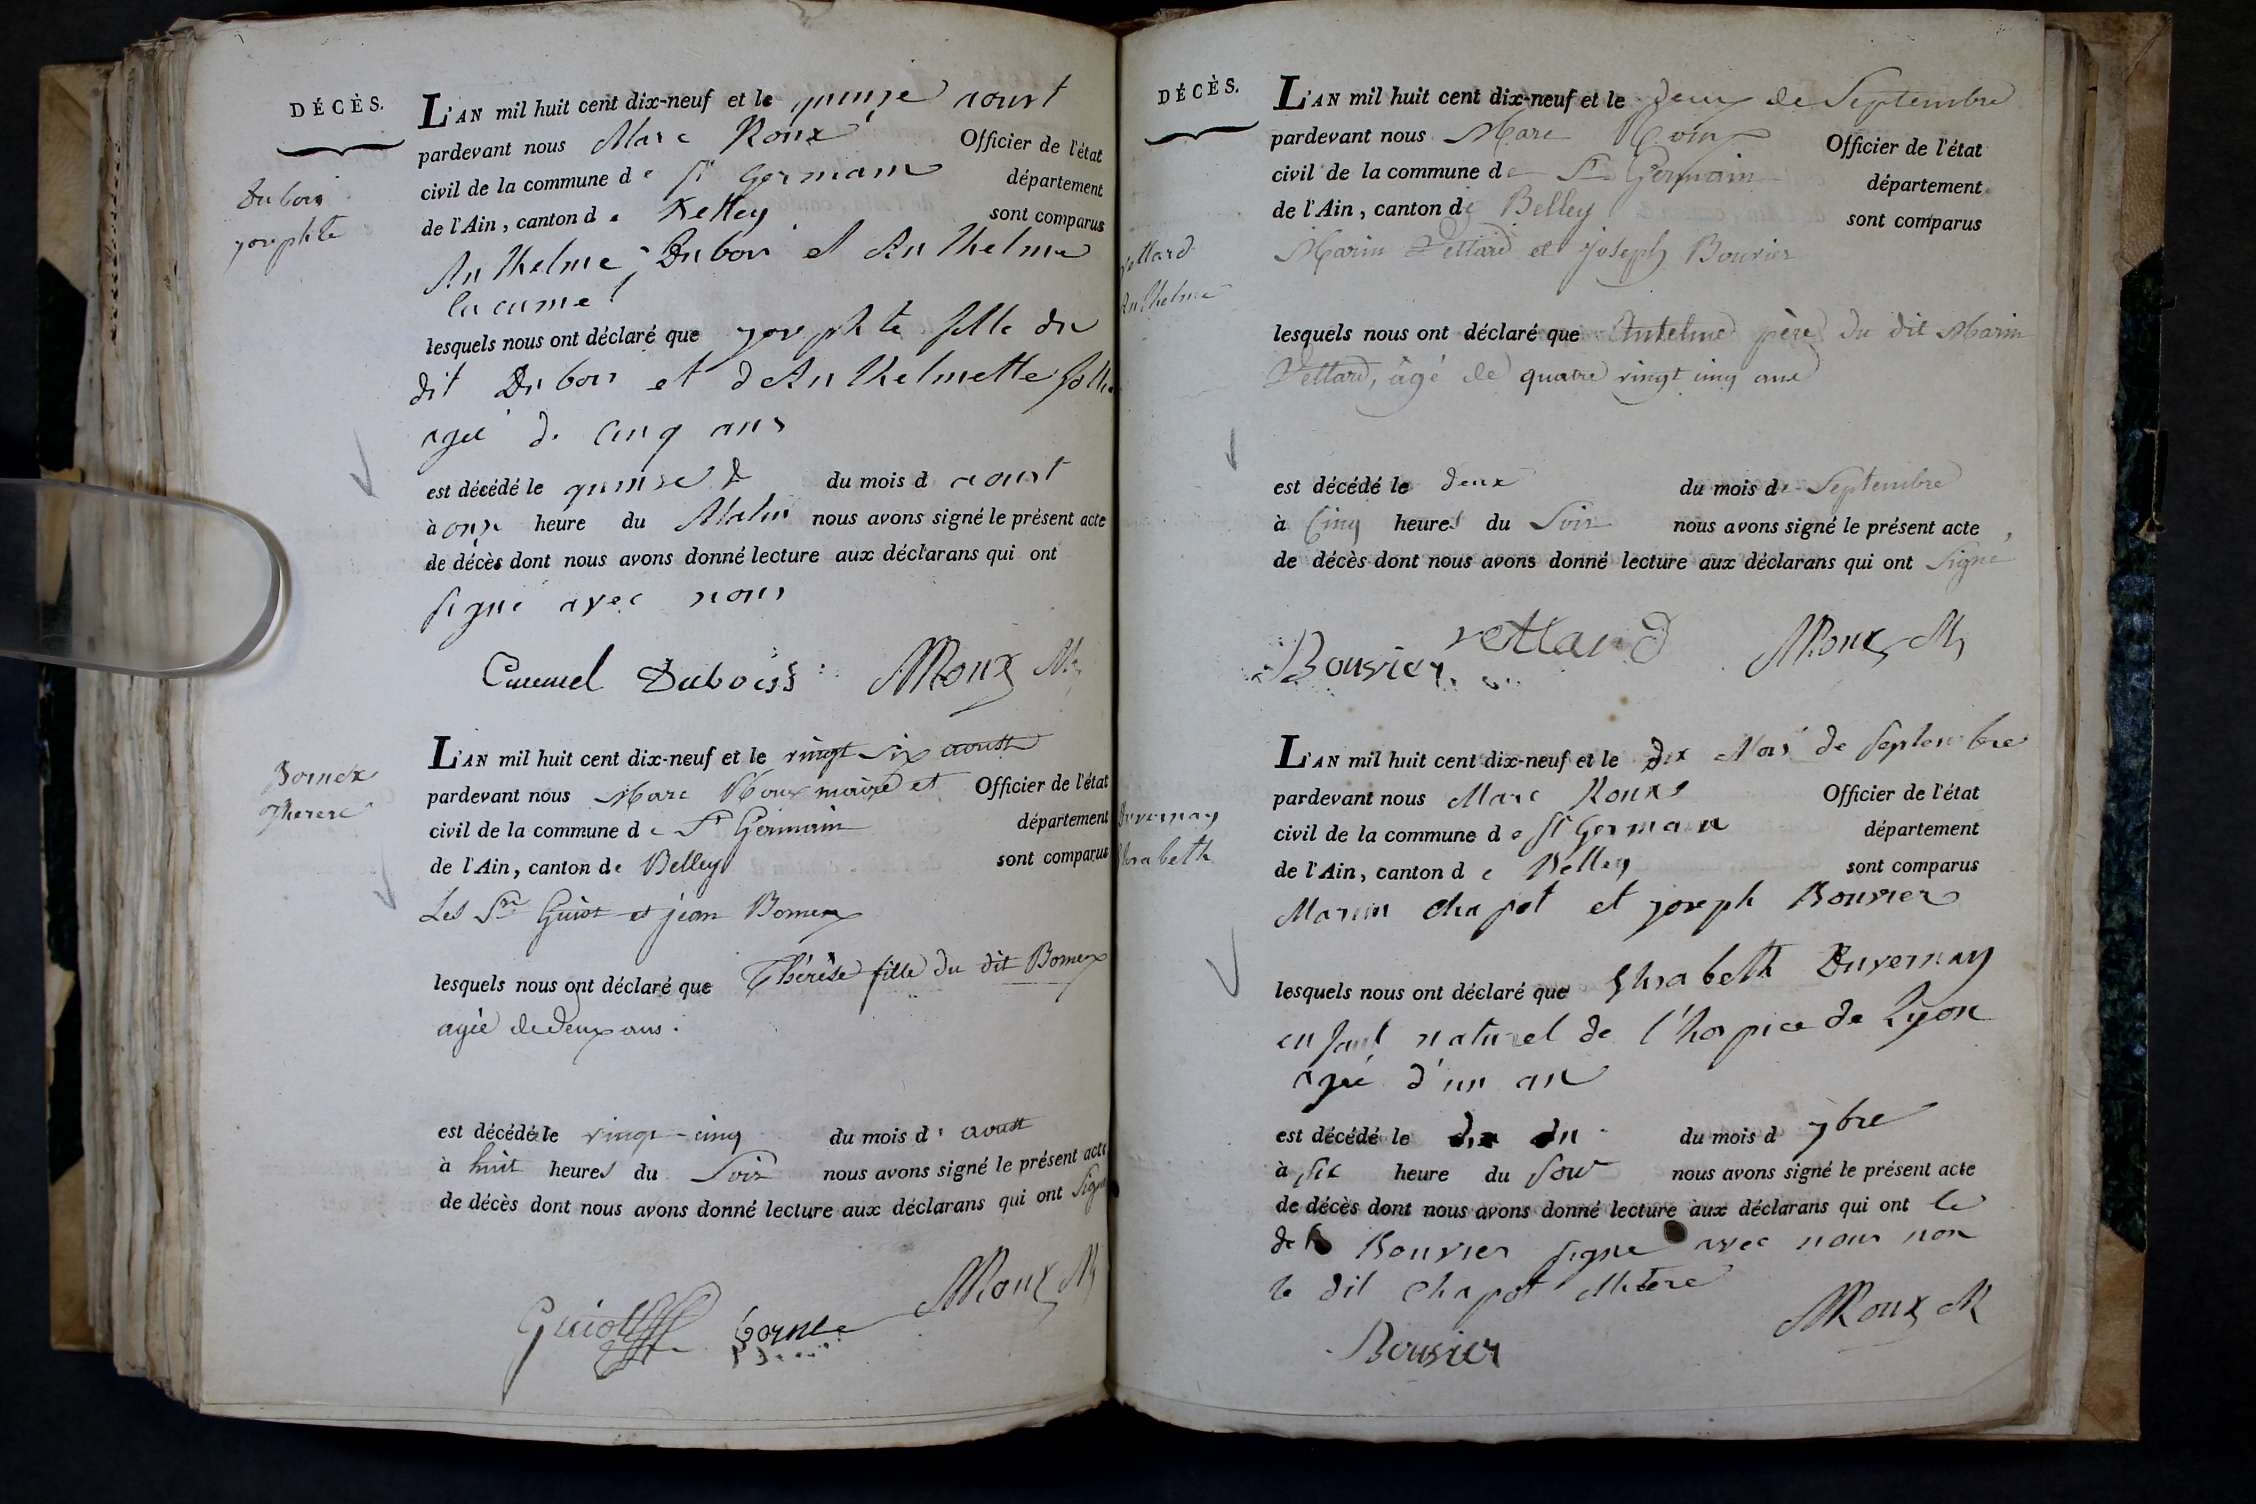 DÉCÈS.
Dubois
josephte
L'AN mil huit cent dix-neuf et le quinze aoust
pardevant nous Marc Roux Officier de l'état
civil de la commune de St Germain département
de l'Ain, canton de Belley sont comparus
Anthelme Dubois et Anthelme
lacume
lesquels nous ont déclaré que josephte fille du
dit Dubois et de Anthelmette
agée de cinq ans
est décédé le quinze du mois d aoust
à onze heure du Matin nous avons signé le présent acte
de décès dont nous avons donné lecture aux déclarans qui ont
signé avec nous
Dubois MRoux M
Bornex
Therese
L'AN mil huit cent dix-neuf et le vingt six aoust
pardevant nous Marc Roux maire et Officier de l'état
civil de la commune de St Germain département
de l'Ain, canton de Belley sont comparus
Les Srs Guiot et jean Bornex
lesquels nous ont déclaré que Thérèse fille du dit Bornex
agée de deux ans.
est décédé le vingt-cinq du mois d'aoust
à huit heures du Soir nous avons signé le présent acte
de décès dont nous avons donné lecture aux déclarans qui ont Signé
Guiot borne MRoux M
DÉCÈS.
vettard
Anthelme
L'AN mil huit cent dix-neuf et le deux de Septembre
pardevant nous Marc Roux Officier de l'état
civil de la commune de St Germain département
de l'Ain, canton de Belley sont comparus
Marin Vettard et joseph Bouvier
lesquels nous ont déclaré que Antelme père du dit Marin
Vettard, âgé de quatre vingt cinq ans
est décédé le deux du mois de Septembre
à Cinq heures du Soir nous avons signé le présent acte
de décès dont nous avons donné lecture aux déclarans qui ont Signé
Bouvier vettard MRoux M
Duvernay
Elisabeth
L'AN mil huit cent dix-neuf et le dix Mois de septembre
pardevant nous Marc Roux Officier de l'état
civil de la commune de St Germain département
de l'Ain, canton de Belley sont comparus
Marin chapot et joseph Bouvier
lesquels nous ont déclaré que Elisabeth Duvernay
enfant naturel de l'hospice de Lyon
agée d'un an
est décédé le dix du du mois d 7bre
à six heure du soir nous avons signé le présent acte
de décès dont nous avons donné lecture aux déclarans qui ont le
Bouvier signé avec nous non
le dit chapot
Bouvier MRoux M